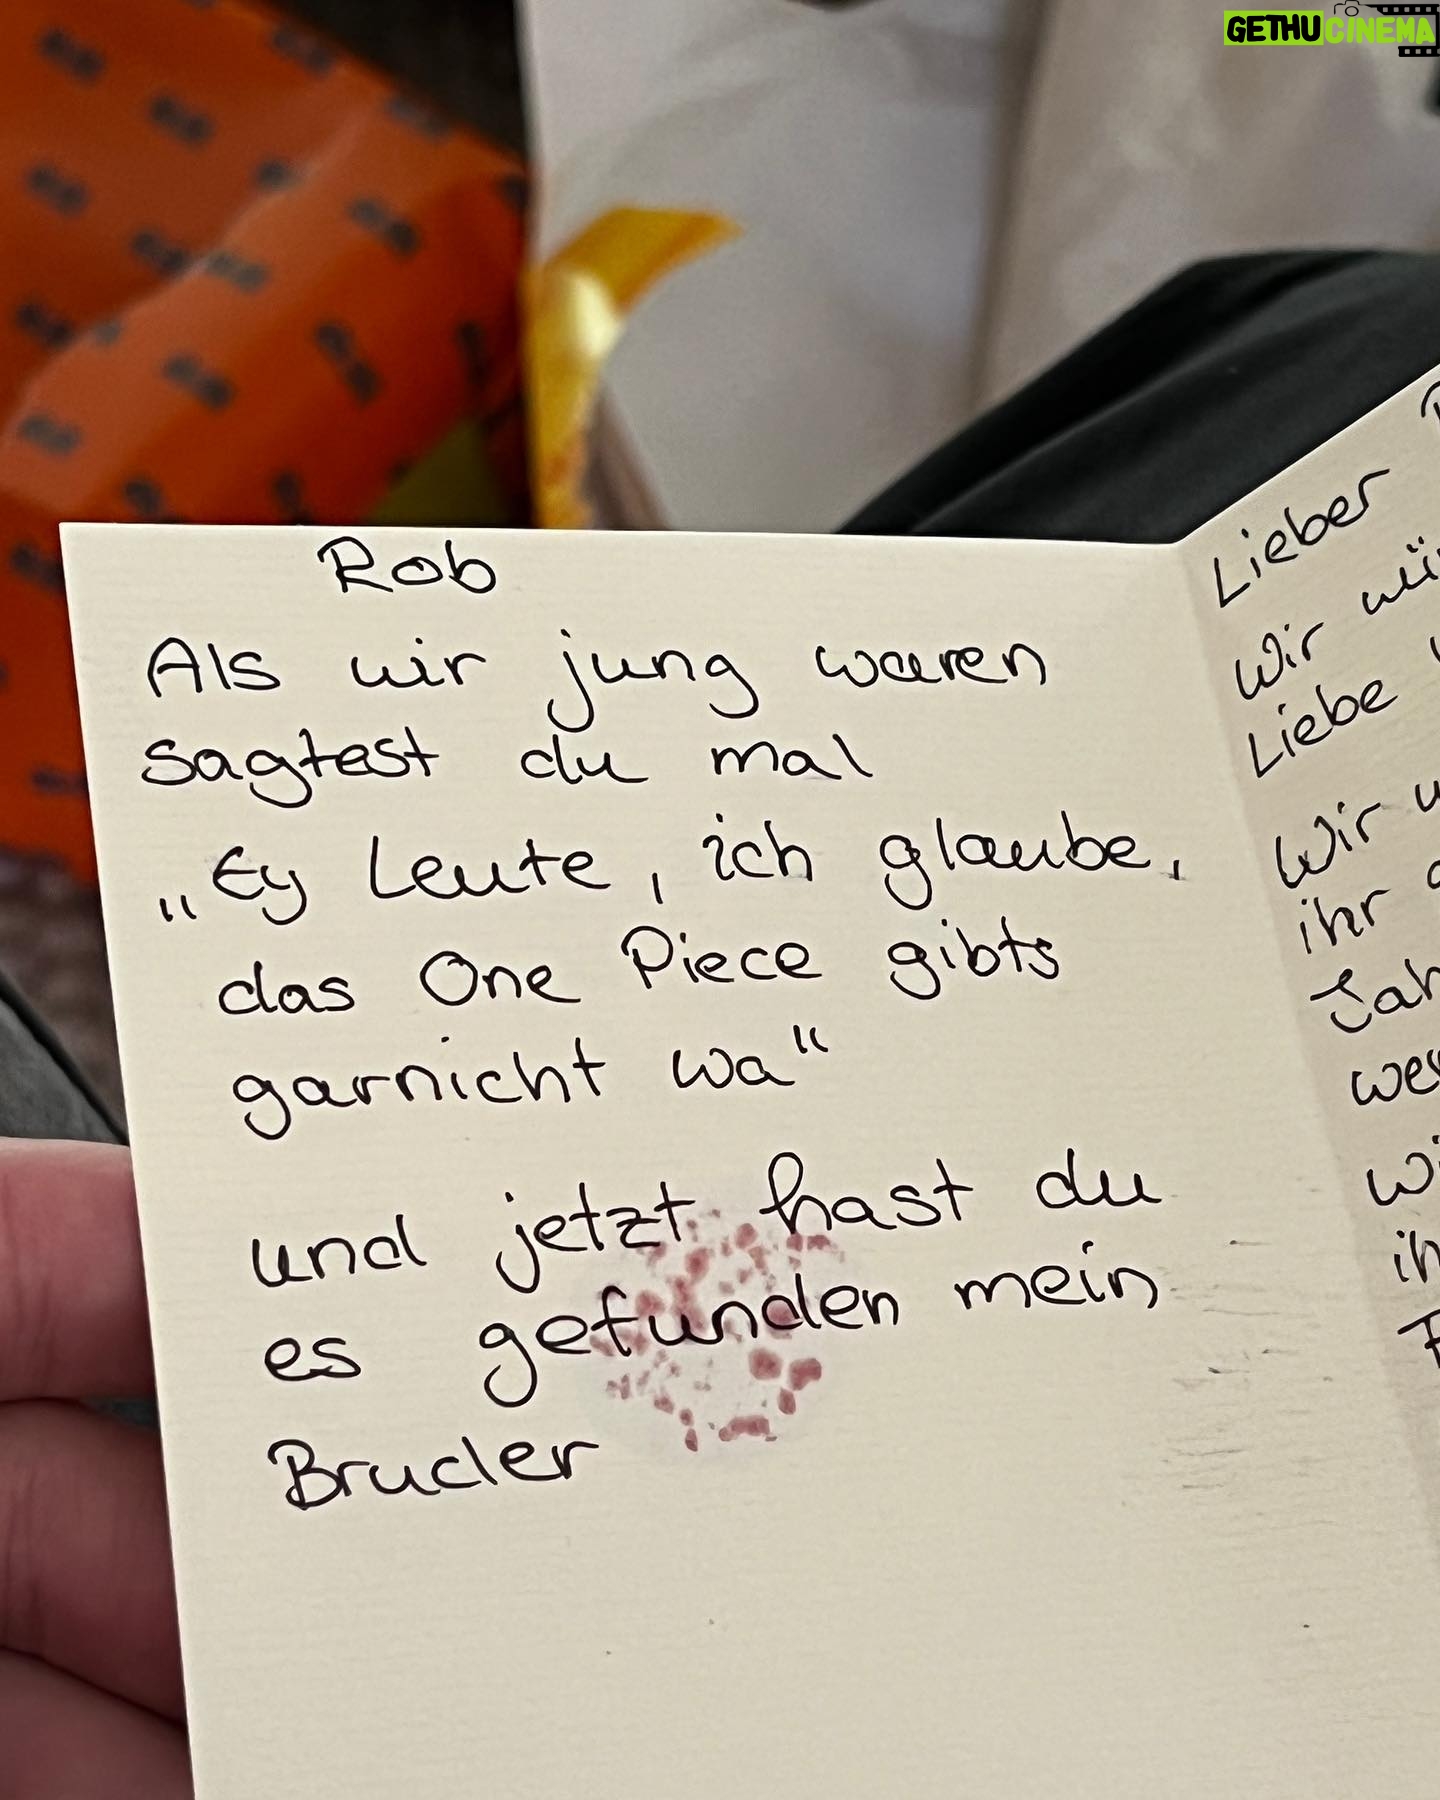 GETHUCINEMA
Rob
Als wir jung waren
sagtest du mal
„Ey Leute, ich glaube,
das One Piece gibts
garnicht wa"
und jetzt hast du
es gefunden mein
Bruder
Lieber
Wir
Liebe
Wir
ihr